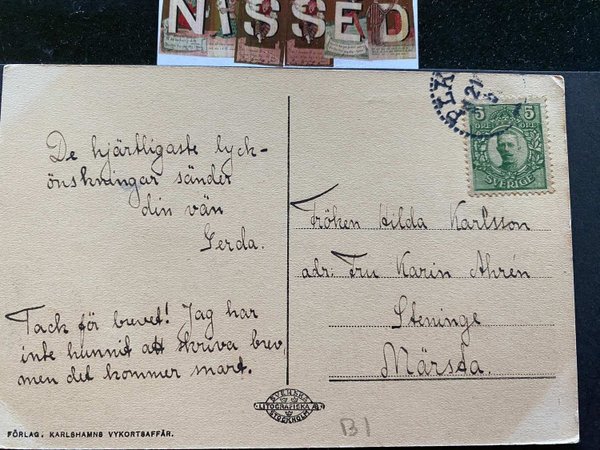 NISSED
De hjärtligaste lyck-
önskningar sänder
din vän
Gerda.
Tack för brevet! Jag har
inte hunnit att skriva brev,
men det kommer snart.
5 5
ÖRE ÖRE
SVERIGE
Fröken Hilda Karlsson
adr: Fru Karin Ahrén
Steninge
Märsta.
SVENSKA
LITOGRAFISKA AB
STOCKHOLM
FÖRLAG. KARLSHAMNS VYKORTSAFFÄR.
B1